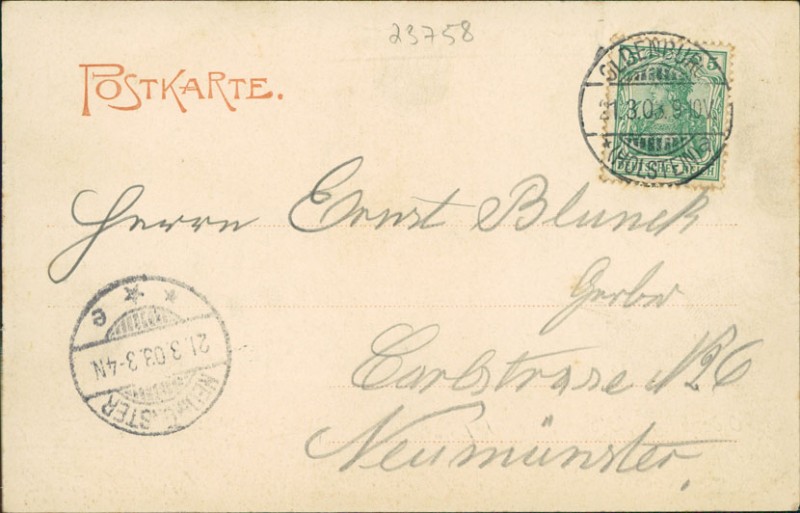 23758
POSTKARTE.
OLDENBURG
21.3.03. 9-10V.
* (HOLSTEIN) a
Herrn Ernst Blunck
Gerber
Carlstrasse No 6
Neumünster.
* * e
21.3.03. 3-4N
NEUMÜNSTER